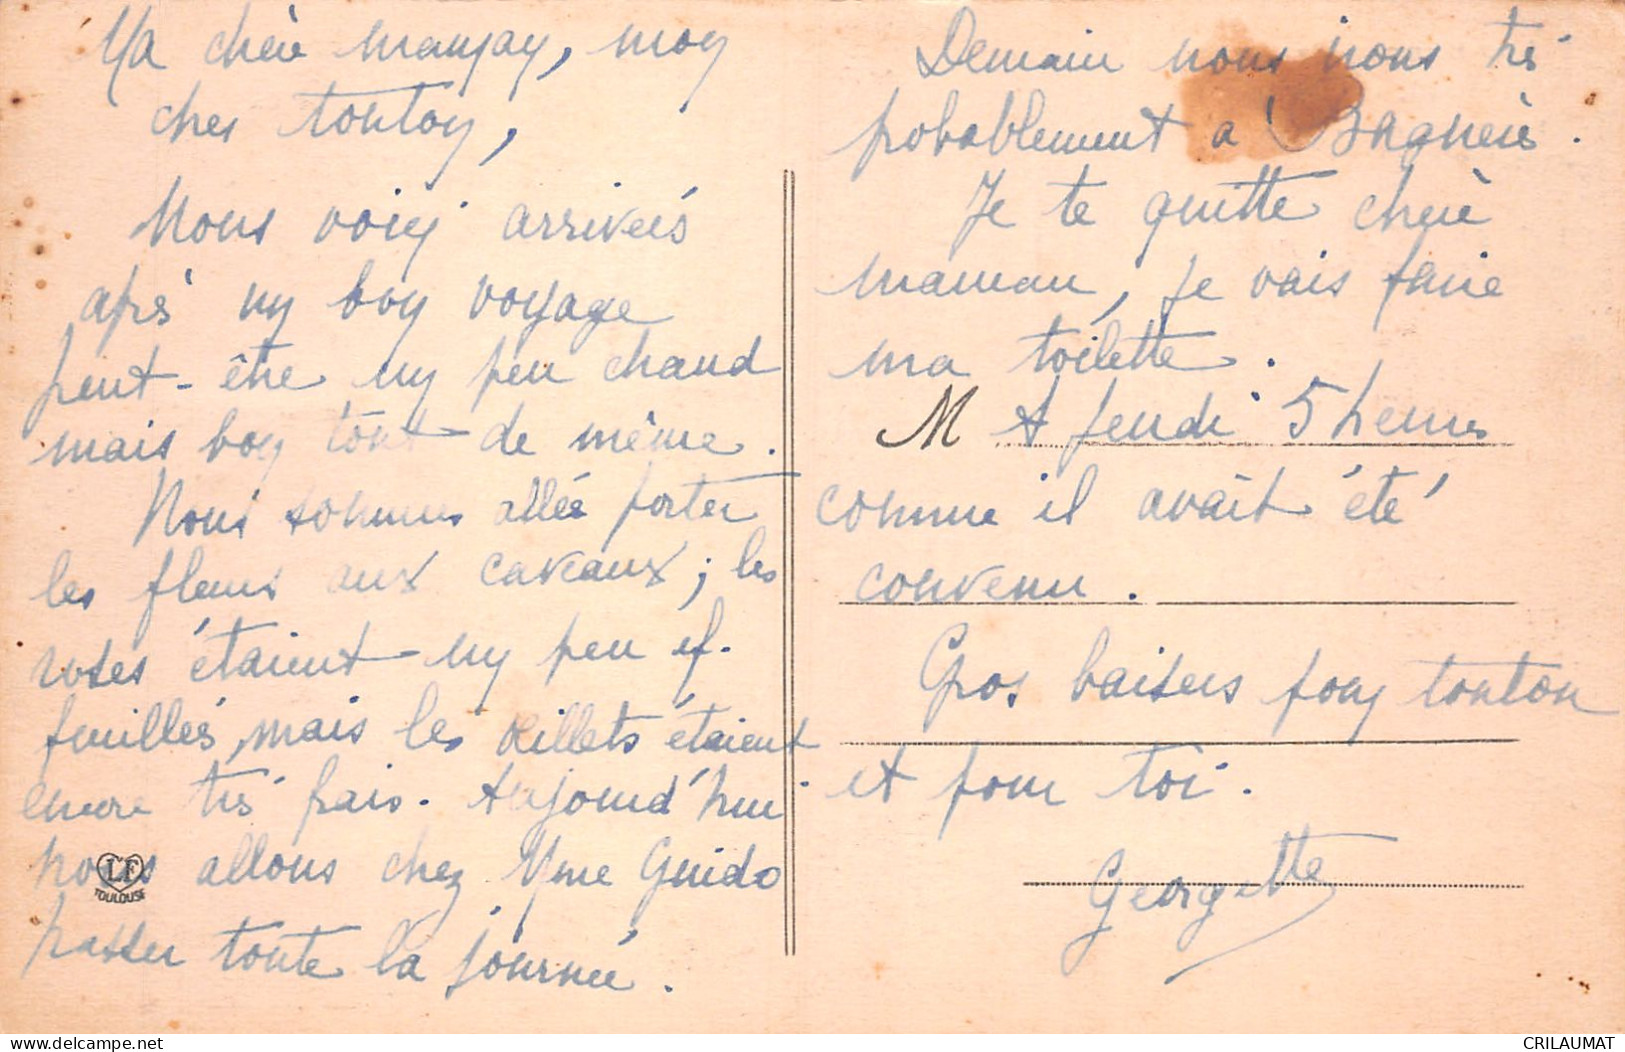 Ma chère maman, mon
cher tonton,
Nous voici arrivées
après un bon voyage
peut-être un peu chaud
mais bon tout de même.
Nous sommes allées porter
les fleurs aux caveaux ; les
roses étaient un peu ef-
feuillées, mais les œillets étaient
encore très frais. Aujourd'hui
nous allons chez Mme Guido
passer toute la journée.
LF
TOULOUSE
Demain nous irons très
probablement à Bagnères.
Je te quitte chère
maman, je vais faire
ma toilette.
M A jeudi 5 heures
comme il avait été
convenu.
Gros baisers pour tonton
et pour toi.
Georgette
Delcampe.net
CRILAUMAT